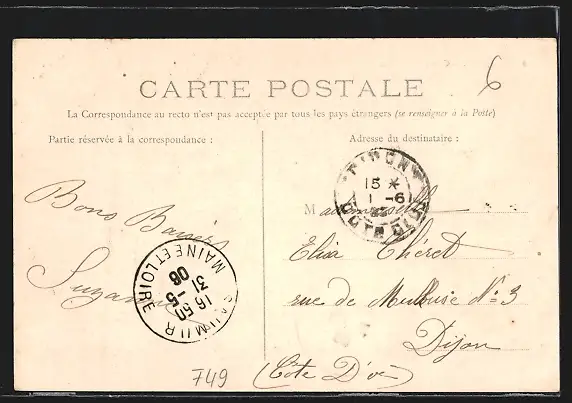 6
CARTE POSTALE
La Correspondance au recto n'est pas acceptée par tous les pays étrangers (se renseigner à la Poste)
Partie réservée à la correspondance :
Adresse du destinataire :
Bons Baisers
Suzanne
SAUMUR
MAINE ET LOIRE
16 50
31 -5
06
15 *
1 -6
COTE D'OR
Mademoiselle
Elisa Théret
rue de Mulhouse N° 3
Dijon
(Côte D'or)
749